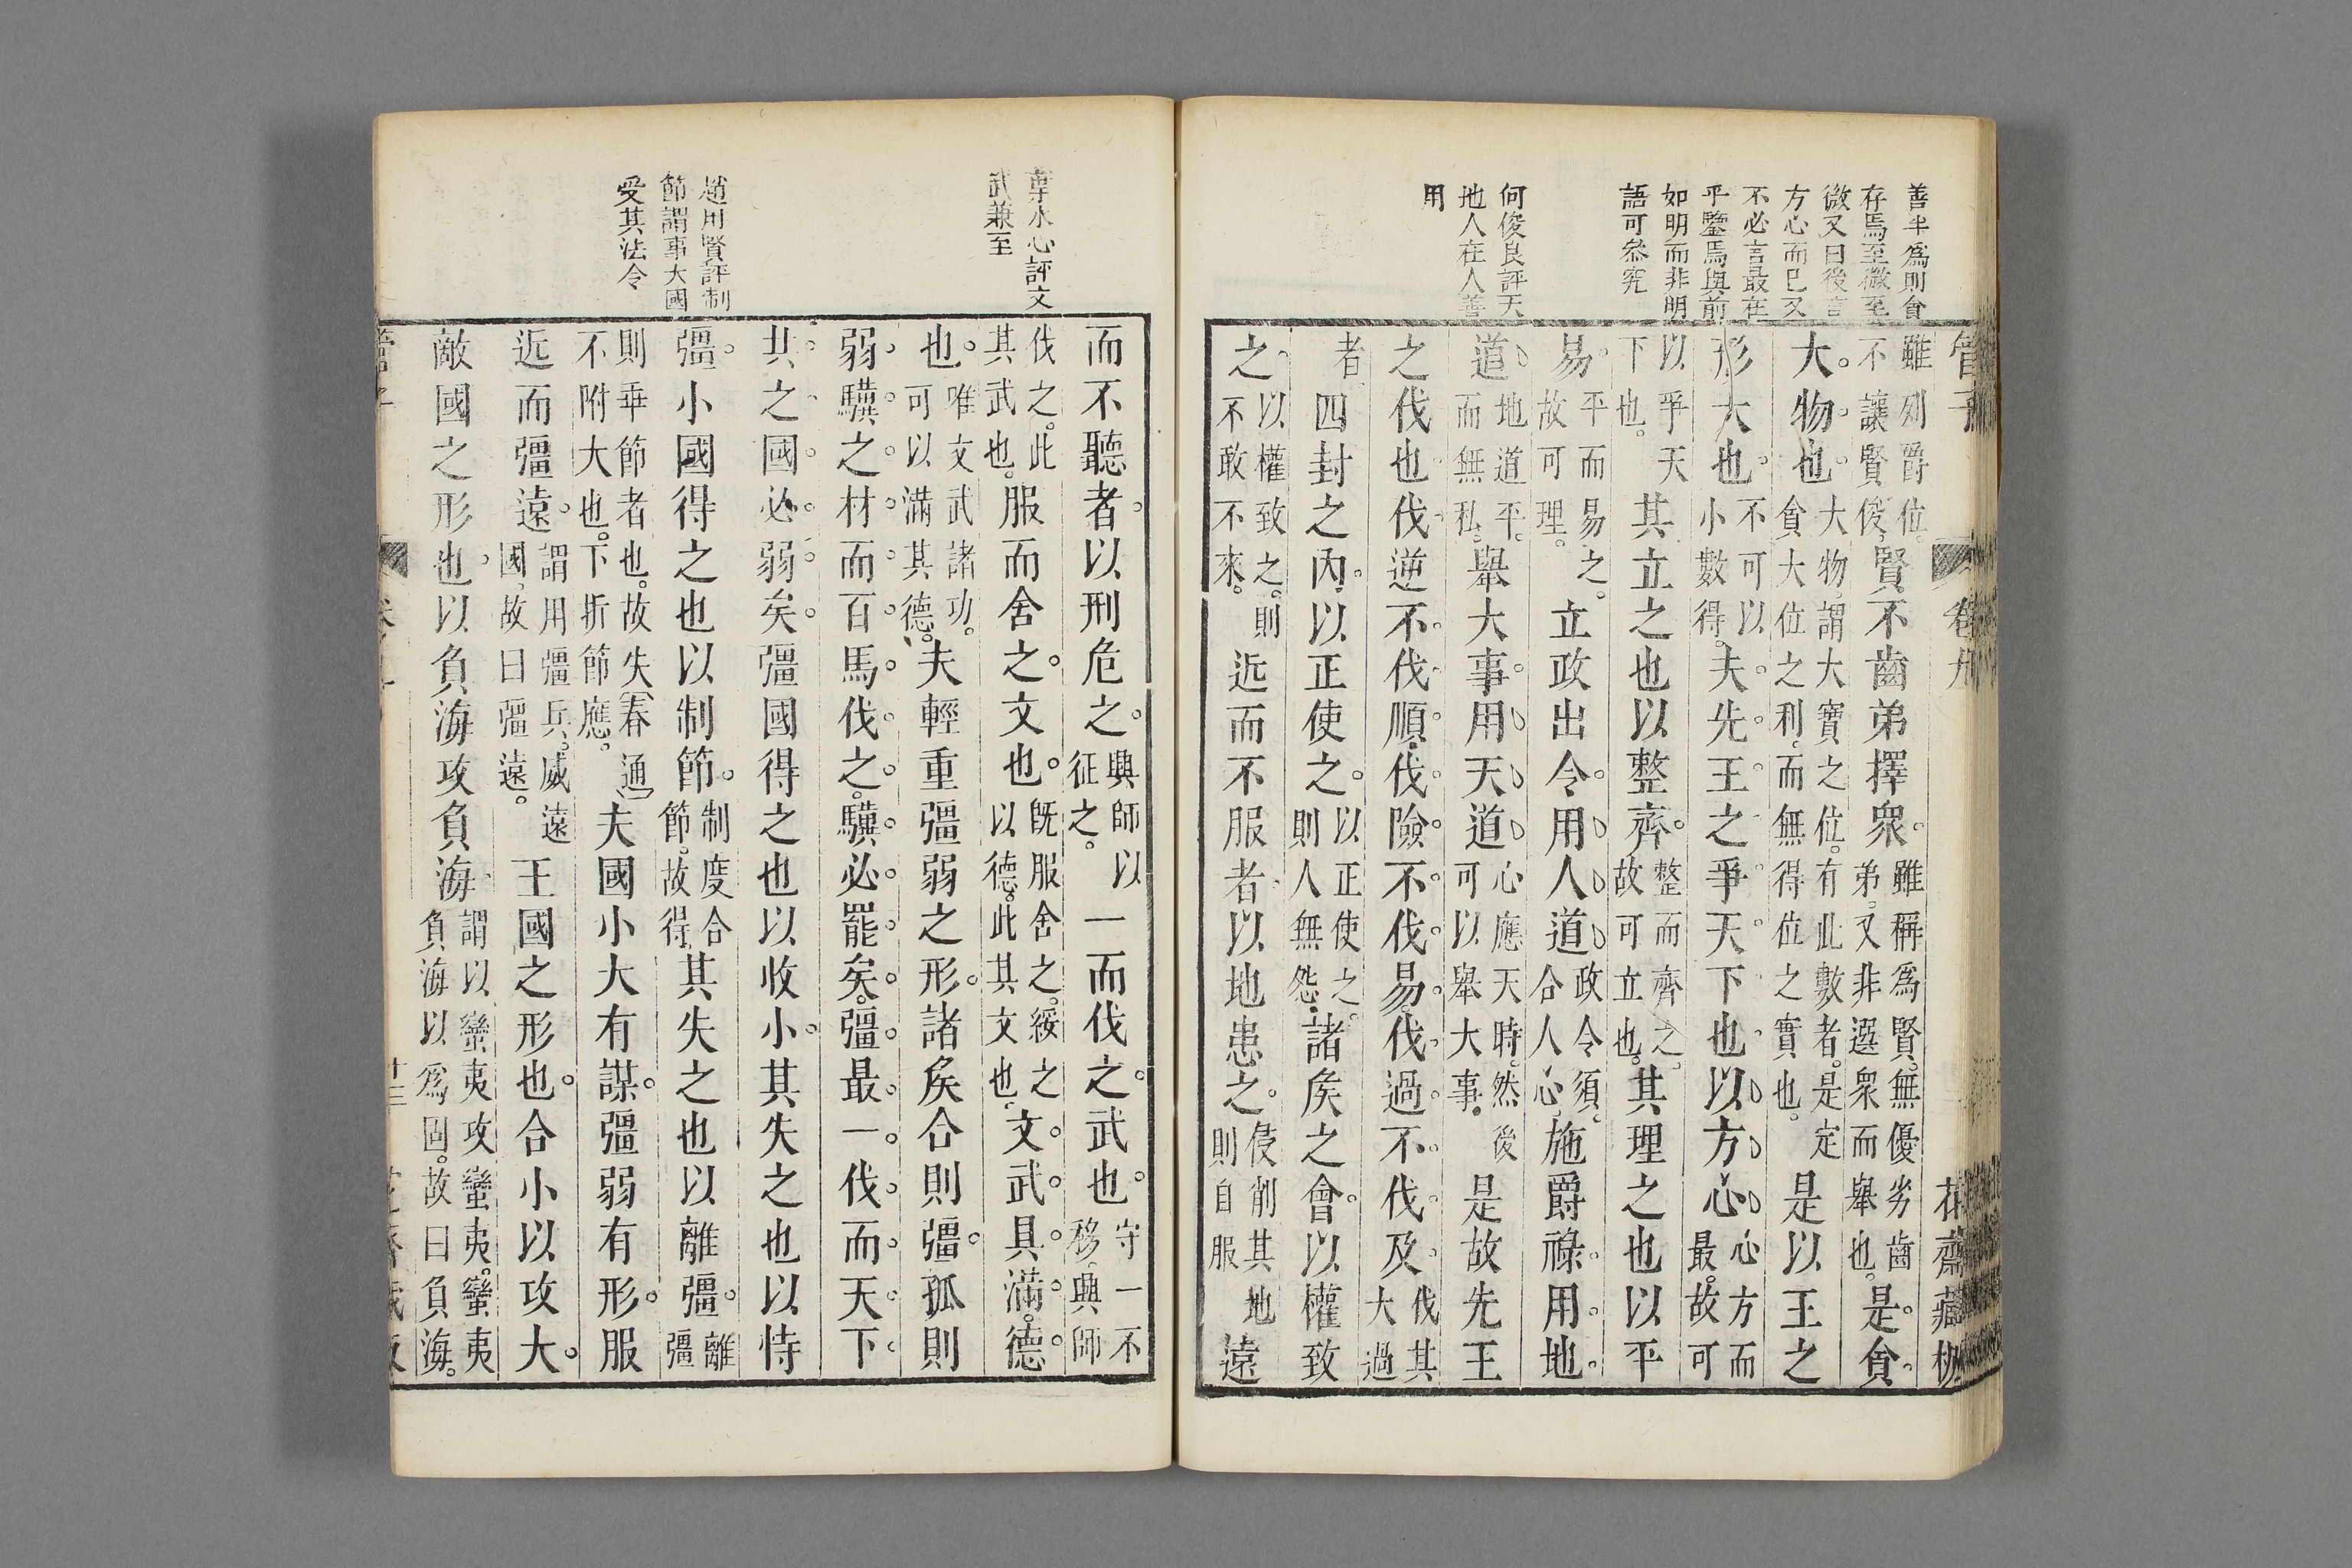 善半為則貪
存焉至微至
微又曰後言
方心而已又
不必言最在
平鑒焉與前
如明而非明
語可叅究
何俊良評天
地人在人善
用
管子 卷九 花齋藏板
雖列爵位。不讓賢俊。賢不齒弟擇眾。雖稱為賢。無優劣齒弟。又非選眾而舉也。是貪
大物也。大物。謂大寶之位。有此數者。是定貪大位之利。而無得位之實也。是以王之
形大也。不可以小數得。夫先王之爭天下也。以方心心方而最。故可
以爭天下也。其立之也以整齊。整而齊之。故可立也。其理之也以平
易。平而易之。故可理。立政出令。用人道政令須合人心。施爵祿。用地
道地道平。而無私。舉大事。用天道心應天時。然後可以舉大事。是故先王
之伐也。伐逆不伐順。伐險不伐易。伐過不伐及。伐其大過
者四封之內。以正使之。以正使之。則人無怨。諸矦之會。以權致
之。以權致之。則不敢不來。近而不服者。以地患之。侵削其地則自服遠
葉水心評文
武兼至
趙用賢評制
節謂事大國
受其法令
而不聽者。以刑危之。興師以征之。一而伐之。武也。守一不移。興師
伐之。此其武也。服而舍之。文也。既服舍之。綏之以德。此其文也。文武具滿。德
也。唯文武諸功。可以滿其德。夫輕重彊弱之形。諸矦合則彊。孤則
弱。驥之材。而百馬伐之。驥必罷矣。彊最一伐。而天下
共之。國必弱矣。彊國得之也以收小。其失之也以恃
彊。小國得之也以制節。制度合節。故得其失之也以離彊。離彊
則乖節者也。故失(春通)不附大也。下折節應。夫國小大有謀。彊弱有形。服
近而彊遠。謂用彊兵。威遠國。故曰彊遠。王國之形也。合小以攻大。
敵國之形也。以負海攻負海。謂以蠻夷攻蠻夷。蠻夷負海以為固。故曰負海。